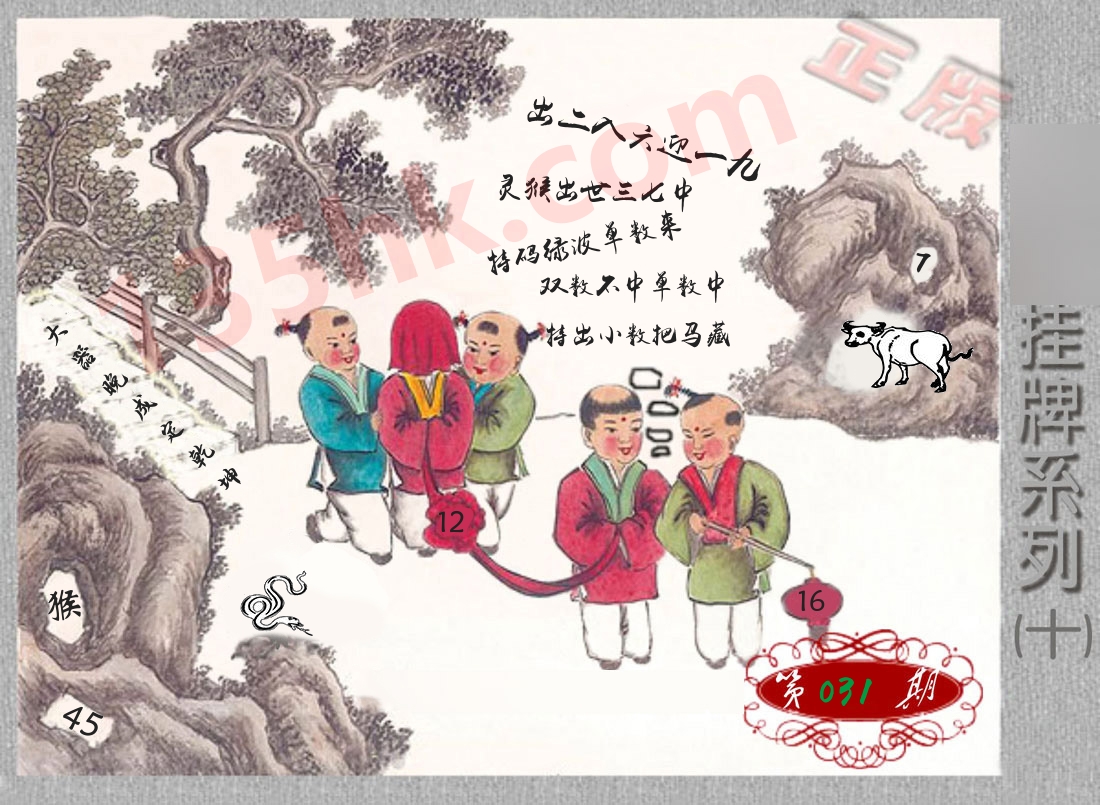 正版
85hk.com
出二八六迎一九
灵猴出世三七中
特码绿波单数来
双数不中单数中
特出小数把马藏
7
大器晚成定乾坤
12
16
猴
45
第031期
挂牌系列(十)